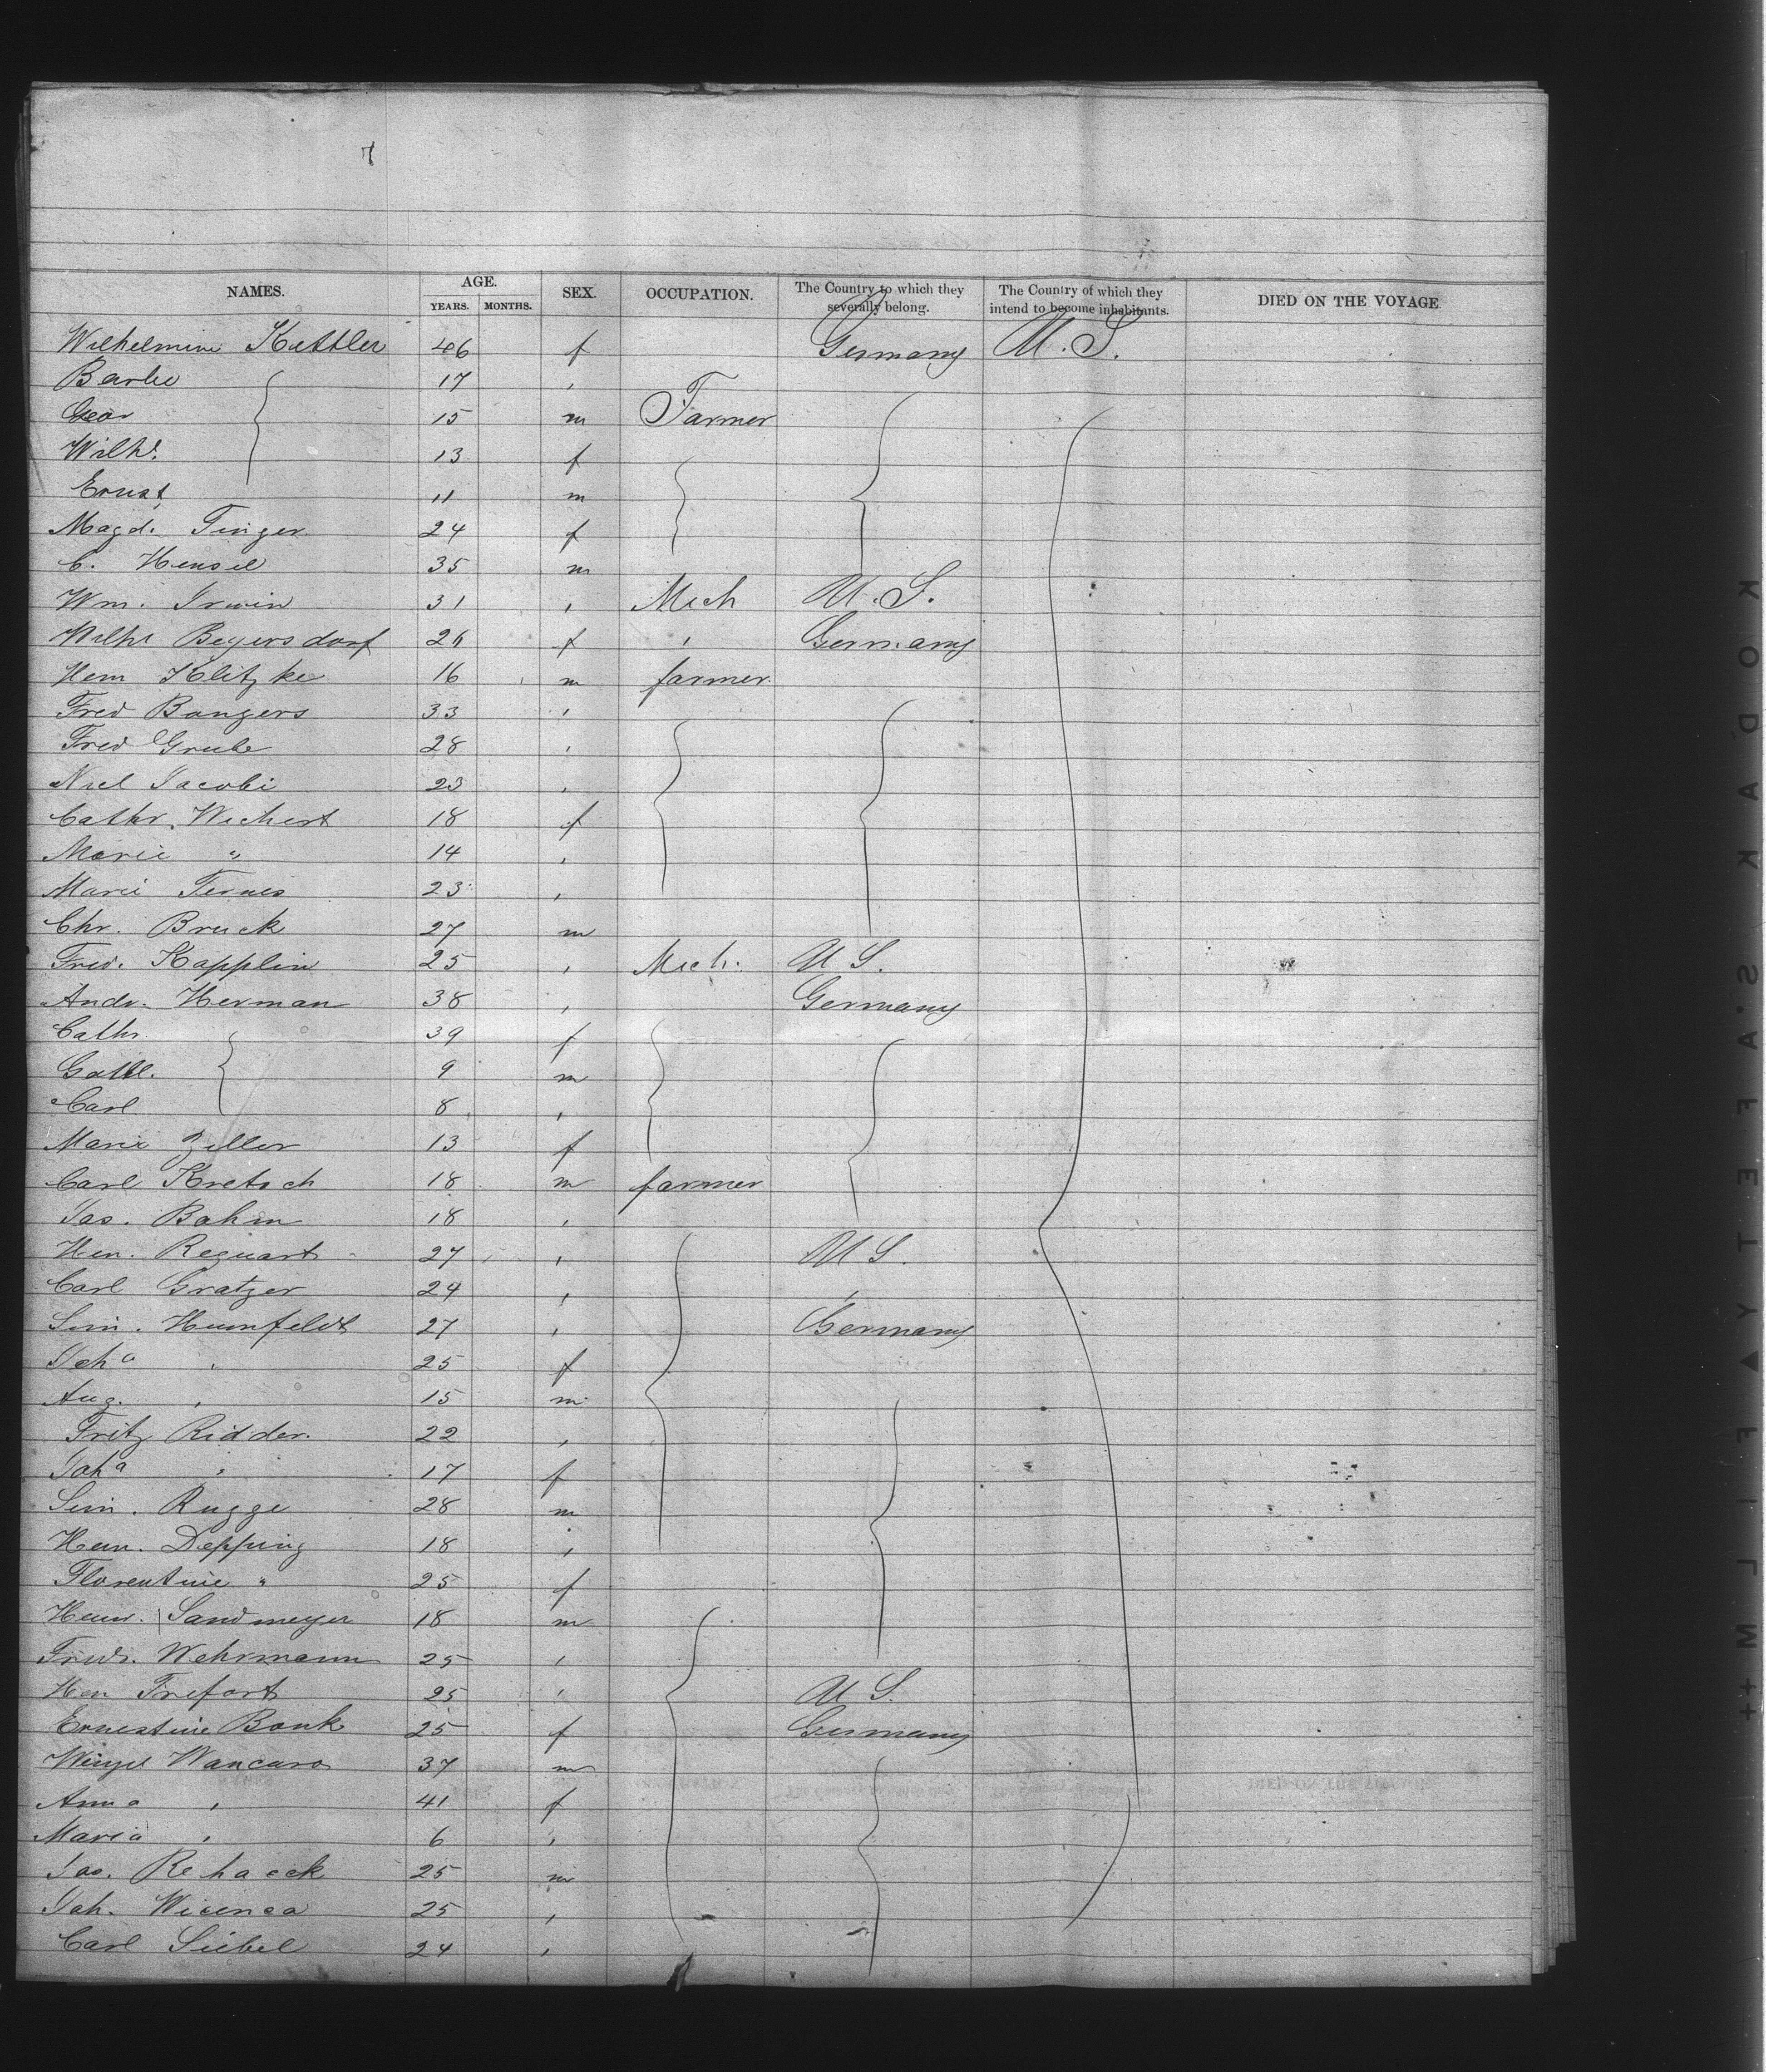 7
NAMES. AGE. YEARS. MONTHS. SEX. OCCUPATION. The Country to which they severally belong. The Country of which they intend to become inhabitants. DIED ON THE VOYAGE.
Wilhelmine Kuttler 46 f Germany U.S.
Barbe 17 "
Geor 15 m Farmer
Wilhe. 13 f
Ernst 11 m
Magd. Finger 24 f
C. Hensel 35 m
Wm. Irwin 31 " Mech U.S.
Wilhe Beyersdorf 26 f " Germany
Herm Klitzke 16 m farmer
Fred Bongers 33 "
Fred Grube 28 "
Nicl Jacobi 23 "
Cathr. Wichert 18 f
Marie " 14 "
Marie Ternes 23 "
Chr. Bruck 27 m
Fred. Kapplin 25 " Mech. U.S.
Andr. Herman 38 " Germany
Cathr. 39 f
Gottl. 9 m
Carl 8 "
Marie Zeller 13 f
Carl Kretsch 18 m farmer
Jos. Bohm 18 "
Hen. Requart 27 " U.S.
Carl Gratzer 24 " "
Sim. Humfeldt 27 " Germany
Joha " 25 f
Aug. " 15 m
Fritz Ridder. 22 "
Joha " 17 f
Sim. Rugge 28 m
Hein. Depping 18 "
Florentine " 25 f
Heinr. Sandmeyer 18 m
Fredr. Wehrmann 25 "
Hen Trefort 25 " U.S.
Ernestine Bonk 25 f Germany
Wancura 37 m
Anna " 41 f
Maria " 6 "
Jos. Rehacek 25 m
Joh. 25 "
Carl Siebel 24 "
KODAK·S'AFETY▲FILM++